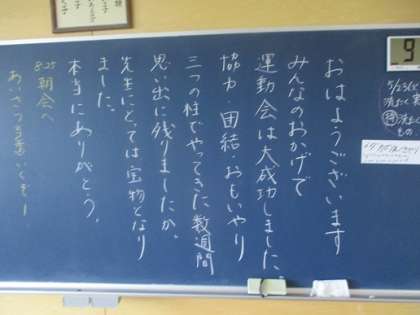 おはようございます
みんなのおかげで
運動会は大成功しました。
協力・団結・おもいやり
三つの性でやってきた数週間
思い出に残りましたか。
先生にとっては宝物となり
ました。
本当にありがとう。
8:25 朝会へ
9